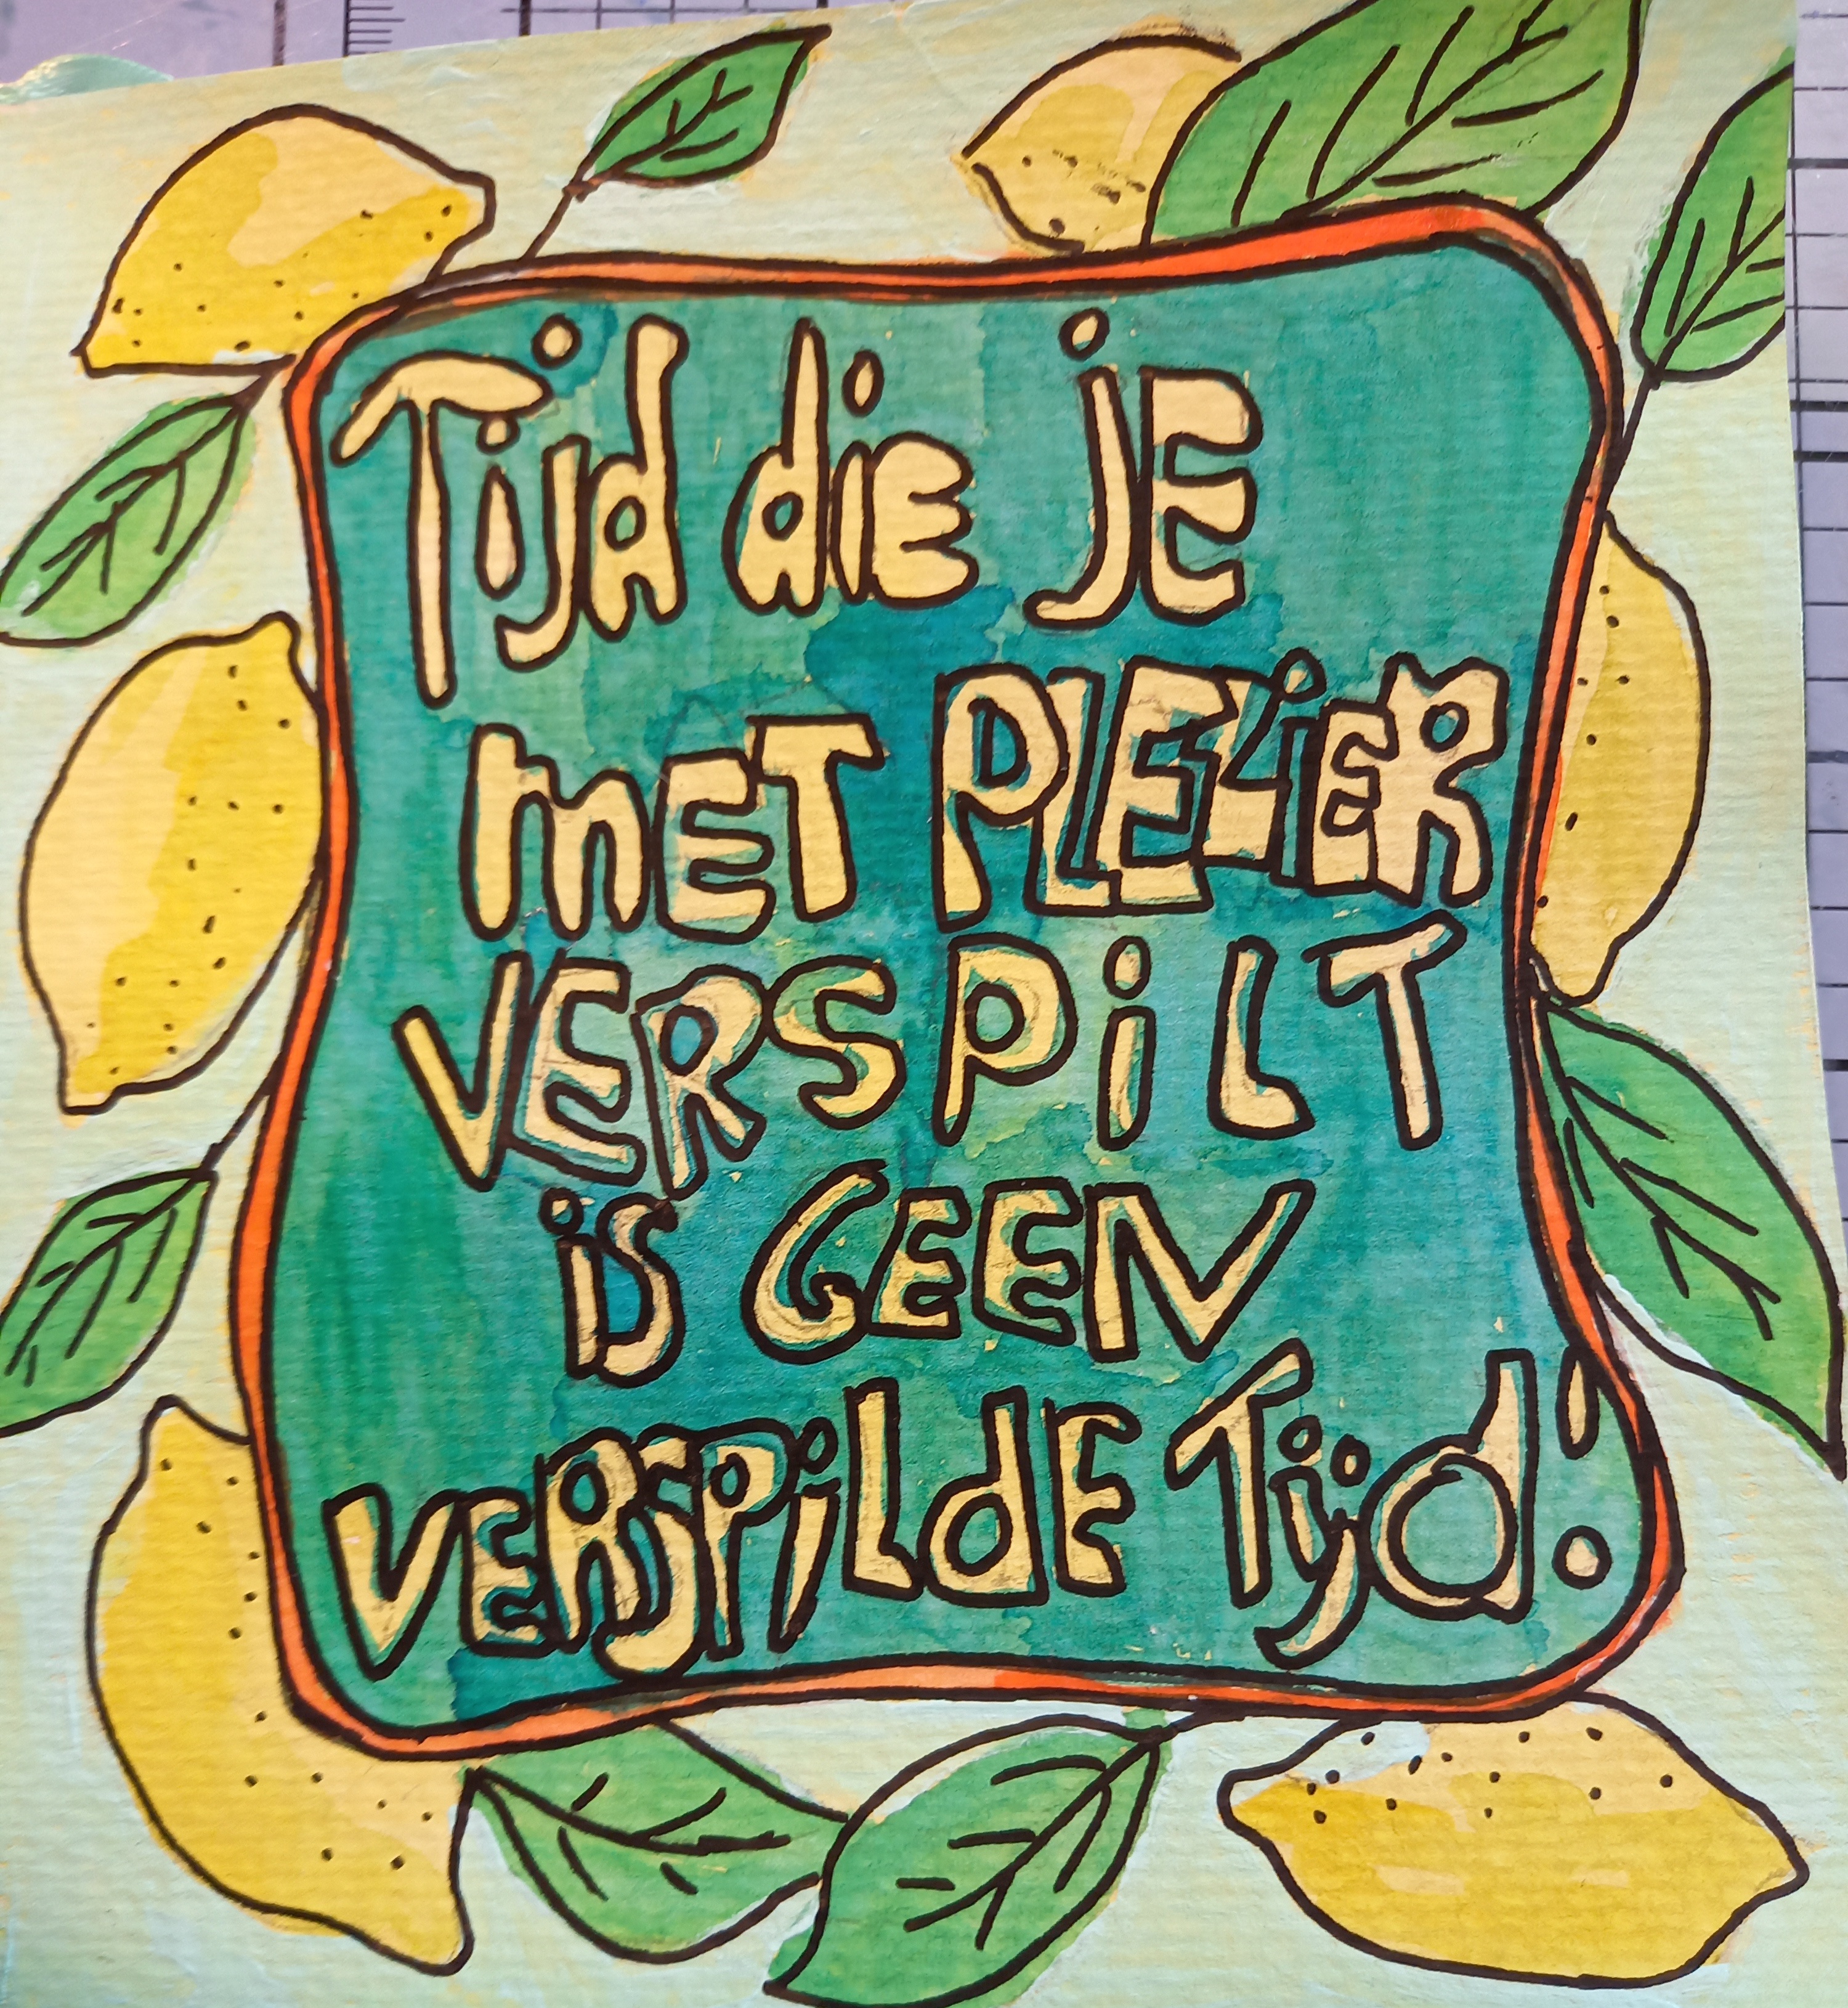 Tijd die je
met PLEZiER
VERSPiLT
iS GEEN
VERSPiLdE Tijd!